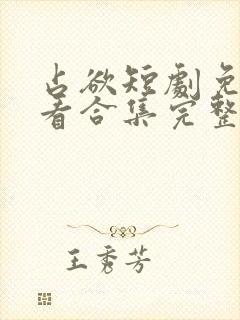 占欲短劇免
看合集完整
王秀芳